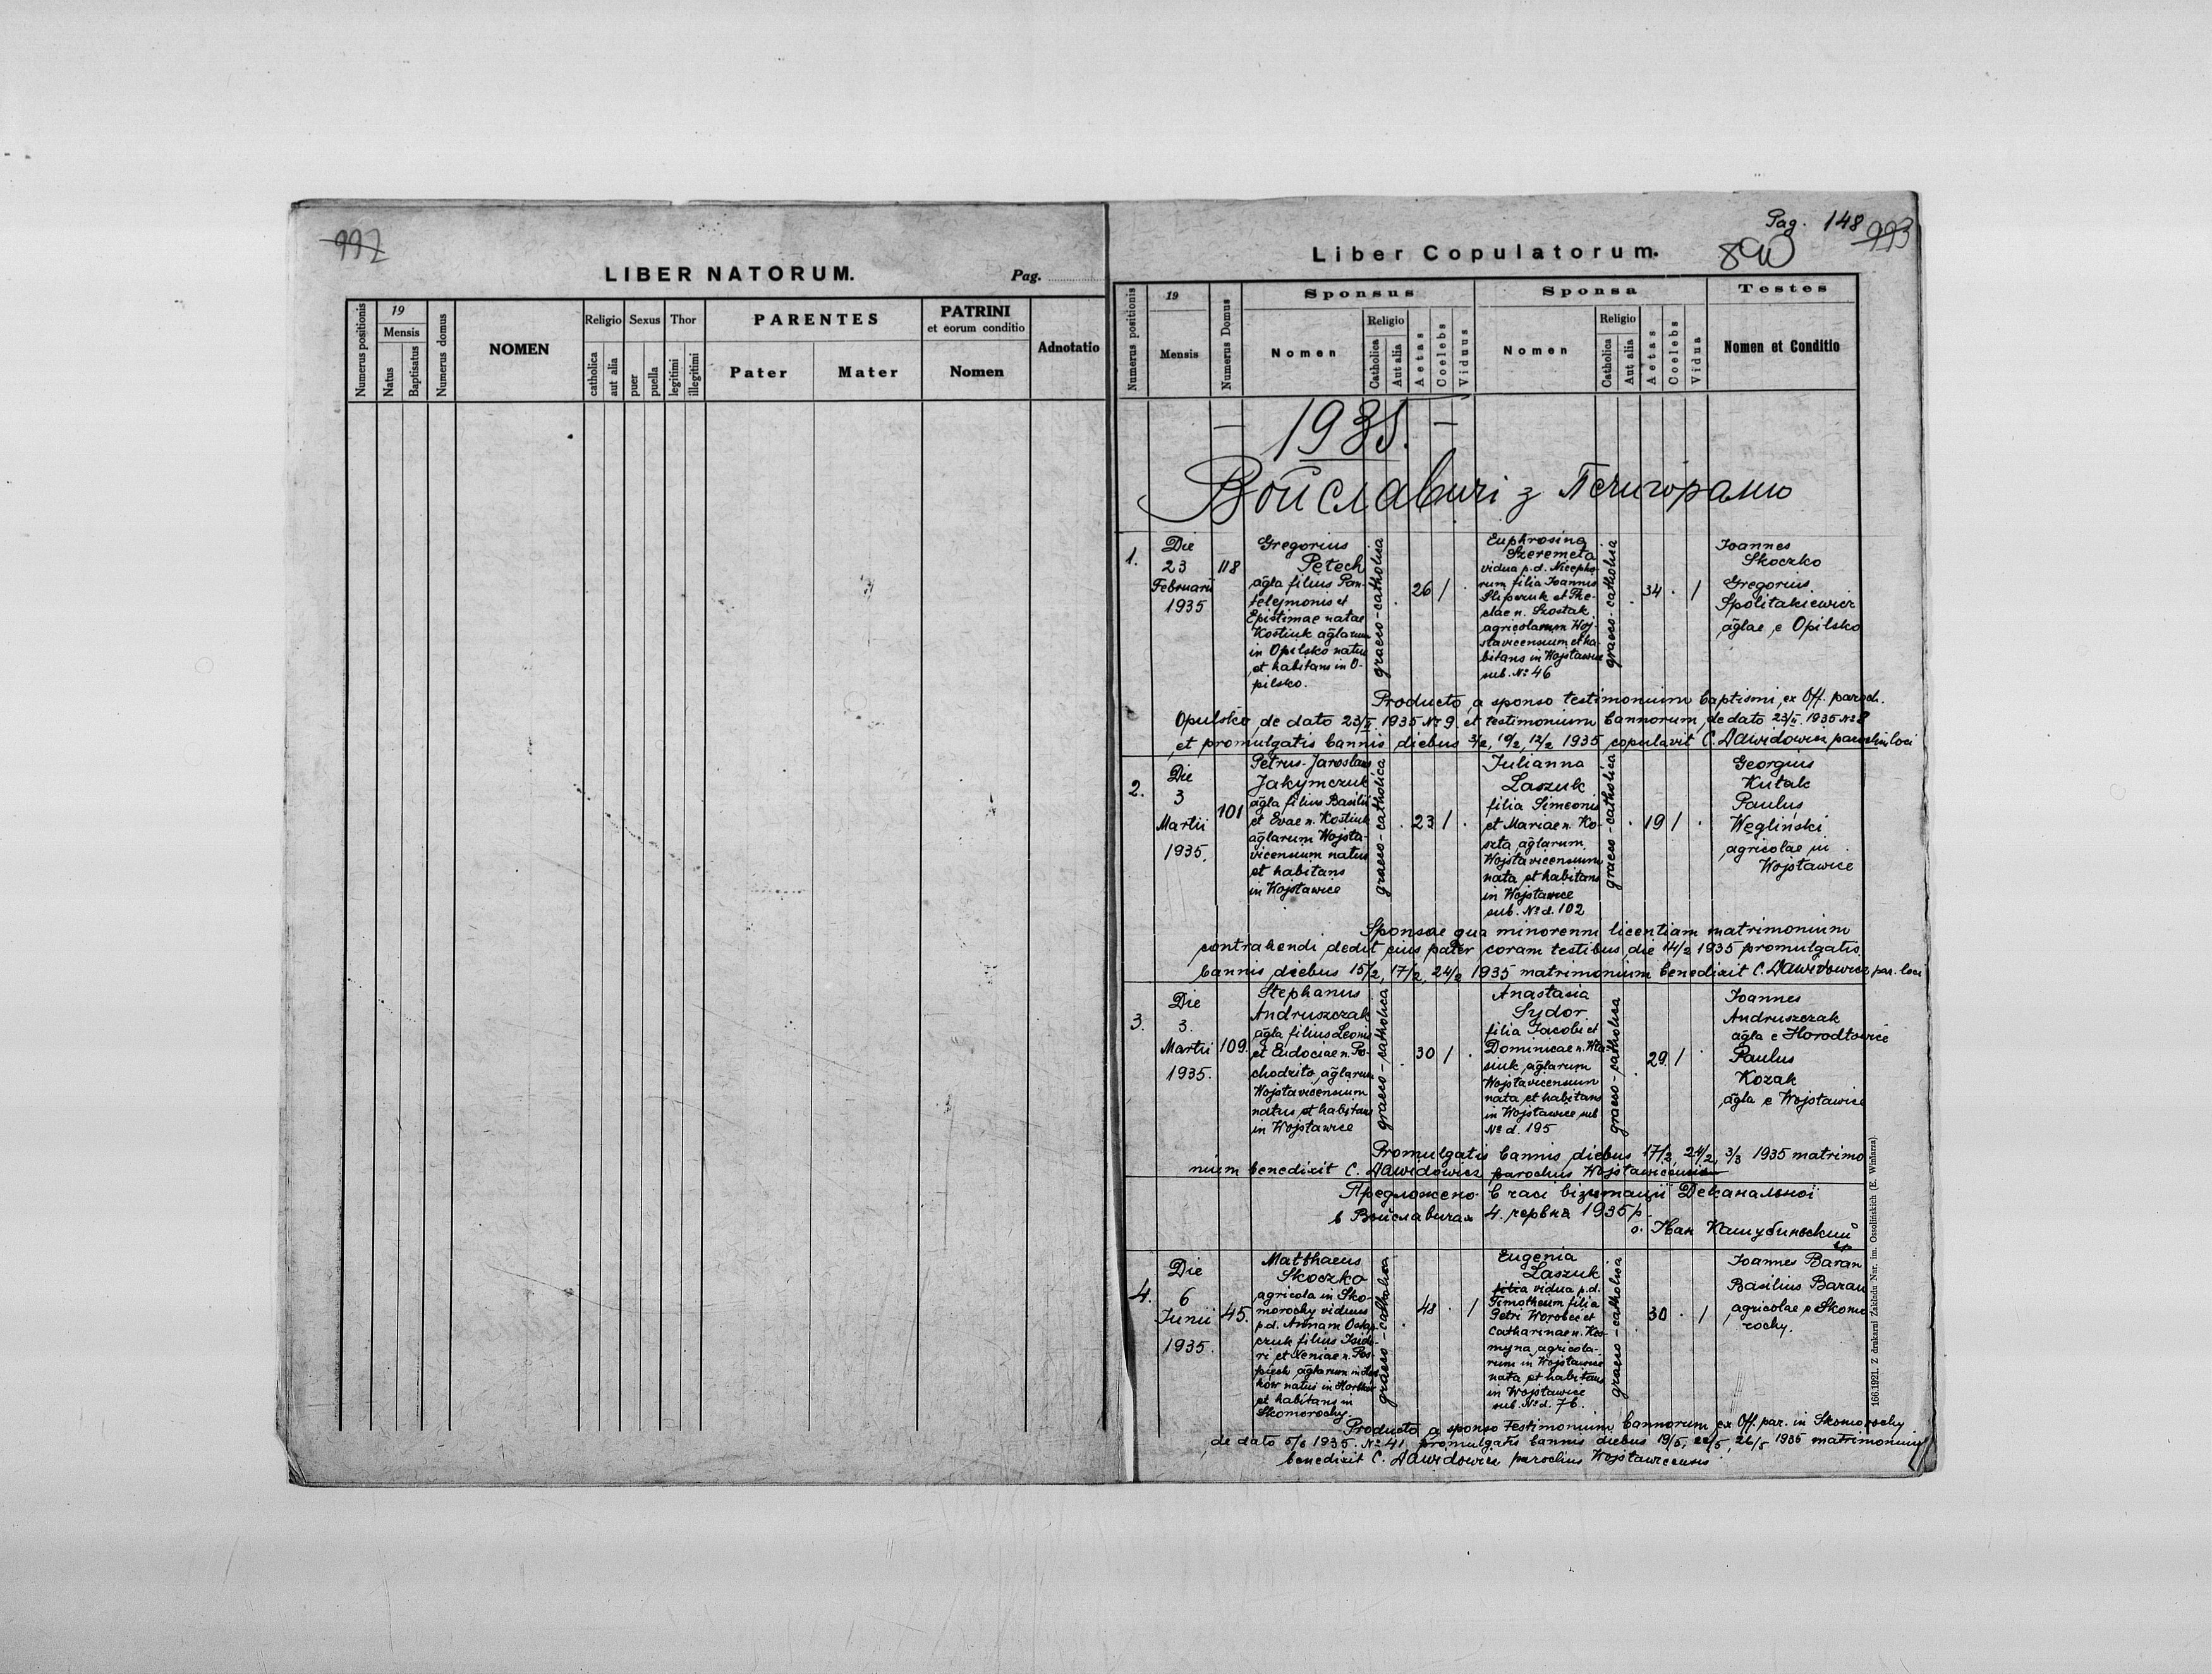 997
LIBER NATORUM.
Pag.
Numerus positionis
19
Mensis
Natus
Baptisatus
Numerus domus
NOMEN
Religio
catholica
aut alia
Sexus
puer
puella
Thor
legitimi
illegitimi
PARENTES
Pater
Mater
PATRINI
et eorum conditio
Nomen
Adnotatio
Pag. 148
993
890
Liber Copulatorum.
Numerus positionis
19
Mensis
Numerus Domus
Sponsus
Nomen
Religio
Catholica
Aut alia
Aetas
Coelebs
Viduus
Sponsa
Nomen
Religio
Catholica
Aut alia
Aetas
Coelebs
Vidua
Testes
Nomen et Conditio
- 1935. -
Войславичі з Печигорами
1.
Die
23
Februarii
1935
118
Gregorius
Petech
agla filius Pan-
telejmonis et
Epistimae natae
Kostiuk aglarum
in Opilsko natus
et habitans in O-
pilsko.
graeco-catholica
26 /
Euphrosina
Szeremeta
vidua p.d. Nicepho-
rum filia Joannis
Slipczuk et The-
clae n. Szostak
agricolarum Woj-
sławicensium et ha-
bitans in Wojsławice
sub. № 46
graeco-catholica
34 . /
Joannes
Skoczko
Gregorius
Spolitakiewicz
aglae e Opilsko
Producto a sponso testimonium baptismi ex Off. paroch.
Opulsko, de dato 23/II 1935 № 9 et testimonium bannorum de dato 23/II. 1935 № 8
et promulgatis bannis diebus 3/2, 10/2, 17/2 1935 copulavit C. Dawidowicz parochus loci
2.
Die
3
Martii
1935.
101
Petrus-Jaroslaus
Jakymczuk
agla filius Basilii
et Evae n. Kostiuk
aglarum Wojsła-
vicensium natus
et habitans
in Wojsławice
graeco-catholica
. 23 / .
Julianna
Laszuk
filia Simeonis
et Mariae n. Ko-
szta aglarum
Wojsłavicensium
nata et habitans
in Wojsławice
sub. № d. 102
graeco-catholica
. 19 / .
Georgius
Kutak
Paulus
Węgliński
agricolae in
Wojsławice
Sponsae qua minorenni licentiam matrimonium
contrahendi dedit eius pater coram testibus die 14/2 1935 promulgatis
bannis diebus 15/2, 17/2, 24/2 1935 matrimonium benedixit C. Dawidowicz par. loci
3.
Die
3.
Martii
1935.
109.
Stephanus
Andruszczak
agla filius Leonis
et Eudociae n. Po-
chodziło, aglarum
Wojsłavicensium
natus et habitans
in Wojsławice
graeco-catholica
. 30 / .
Anastasia
Sydor
filia Jacobi et
Dominicae n. Wła-
siuk aglarum
Wojsłavicensium
nata et habitans
in Wojsławice sub
№ d. 195
graeco-catholica
. 29 / .
Joannes
Andruszczak
agla e Horodłowice
Paulus
Kozak
agla e Wojsławice
Promulgatis bannis diebus 17/2, 24/2, 3/3 1935 matrimo-
nium benedixit C. Dawidowicz parochus Wojsławicensis
Предложено в часі візитації Деканальної
в Войславичах 4. червня 1935 р.
о. Іван
4.
Die
6
Junii
1935.
45.
Matthaeus
Skoczko
agricola in Sko-
morochy viduus
p.d. Annam Ostap-
czuk filius Isido-
ri et Xeniae n. Pos-
piech aglarum in
natus in
et habitans in
Skomorochy.
graeco-catholica
. 48 . /
Eugenia
Laszuk
filia vidua p.d.
Timotheum filia
Petri Worobec et
Catharinae n. Kos-
myna agricola-
rum in Wojsławice
nata et habitans
in Wojsławice
sub. № d. 76.
graeco-catholica
. 30 . /
Joannes Baran
Basilius Baran
agricolae e Skomo-
rochy.
Producto a sponso Testimonium bannorum ex Off. par. in Skomorochy
de dato 5/6 1935. № 41 promulgatis bannis diebus 19/5, 22/5, 26/5 1935 matrimonium
benedixit C. Dawidowicz parochus Wojsławicensis
166.1921. Z drukarni Zakładu Nar. im. Ossolińskich (E. Winiarza).